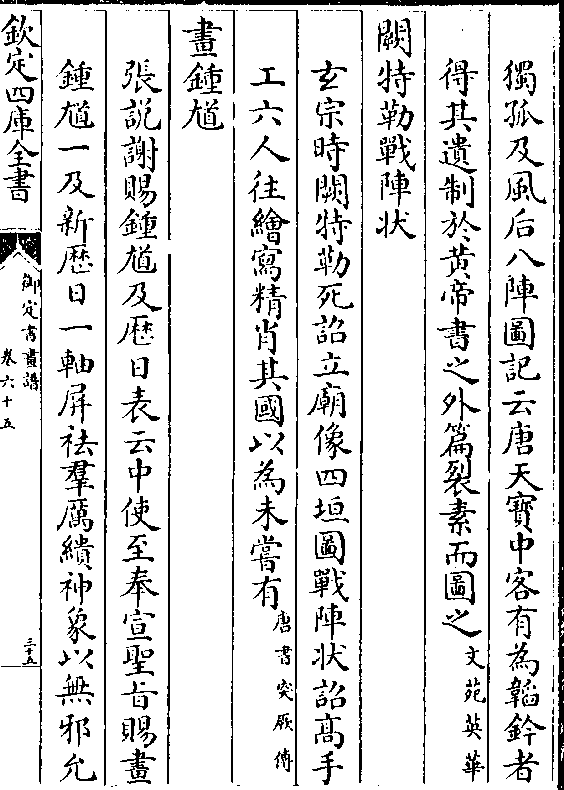 獨孤及風后八陣圖記云唐天寶中客有為韜鈐者
得其遺制於黃帝書之外篇裂素而圖之文苑英華
闕特勒戰陣狀
玄宗時闕特勒死詔立廟像四垣圖戰陣狀詔髙手
工六人往繪寫精肖其國以為未嘗有唐書突厥傳
畫鍾馗
張説謝賜鍾馗及厯日表云中使至奉宣聖旨賜畫
鍾馗一及新厯日一軸屏祛羣厲繢神象以無邪允
欽定四庫全書
御定書畫譜
卷六十五
三十五